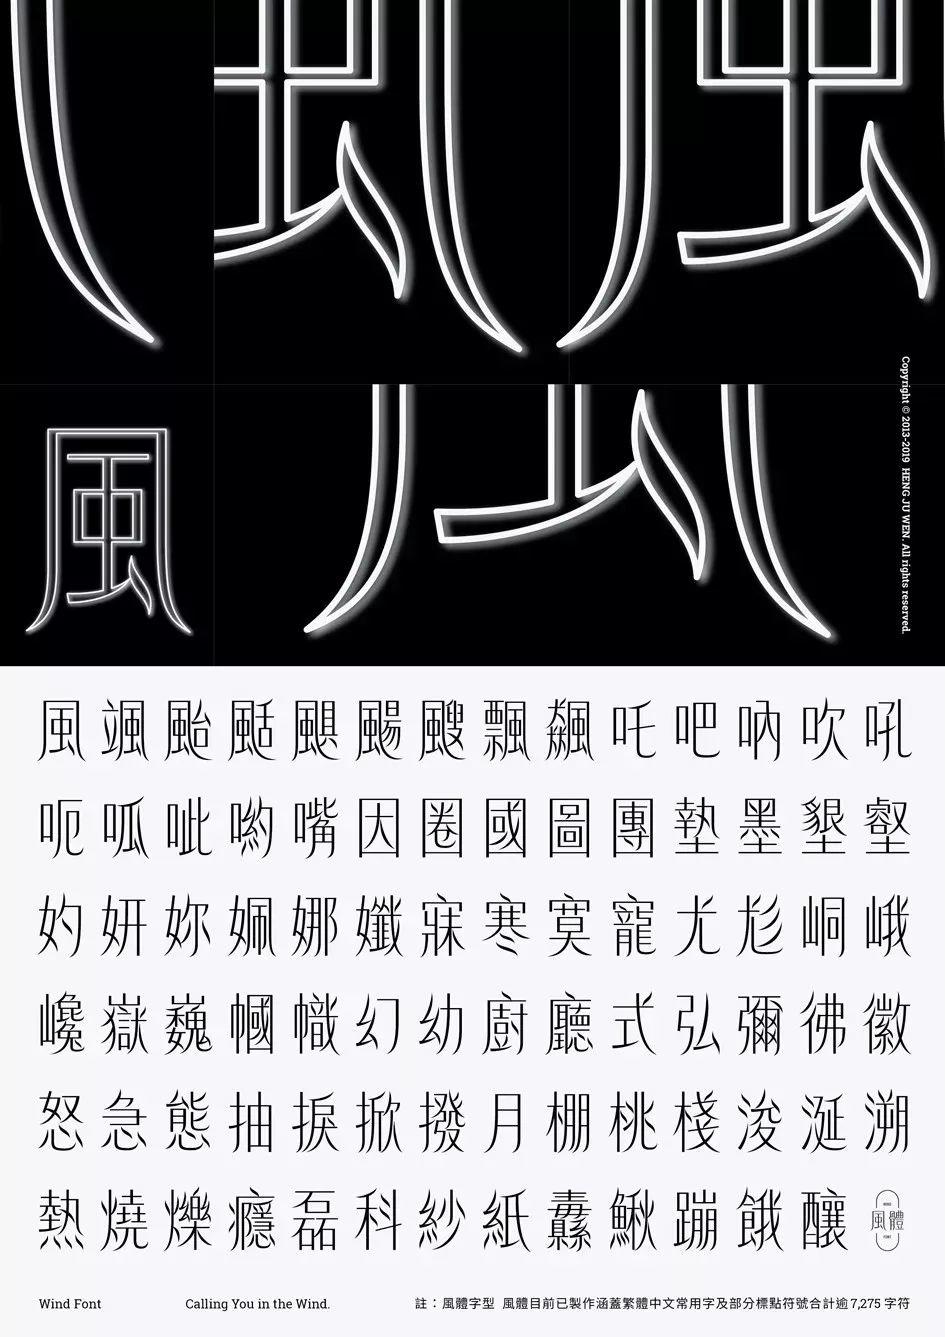 風
Copyright © 2013-2019 HENG JU WEN. All rights reserved.
風颯颱颳颶颺颼飄飆吒吧吶吹吼
呃呱呲喲嘴因圈國圖團墊墨墾壑
妁妍妳姵娜孅寐寒寞寵尤彪峒峨
巉嶽巍幗幟幻幼廚廳式弘彌彿徽
怒急態抽捩掀撥月棚桃棧浚涎溯
熱燒爍癮磊科紗紙纛鰍蹦餓釀
WIND
風體
FONT
Wind Font
Calling You in the Wind.
註：風體字型 風體目前已製作涵蓋繁體中文常用字及部分標點符號合計逾7,275字符